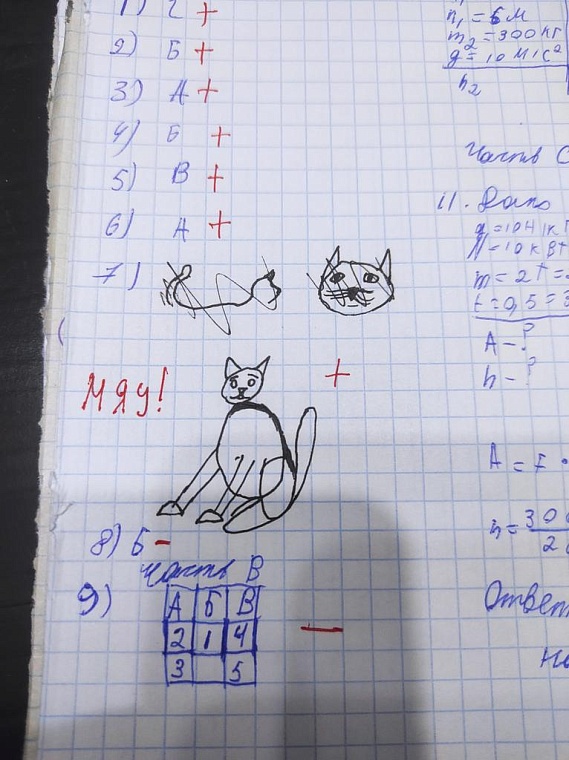 1) Г +
2) Б +
3) А +
4) Б +
5) В +
6) А +
7)
+
МЯУ!
8) Б -
Часть В
9)
А Б В
2 1 4
3 5
-
h₁ = 6 м
m₂ = 300 кг
g = 10 м/с²
h₂
Часть С
11. Дано
N = 10 кВт
m = 2 т = 2
t = 0,5 =
A - ?
h - ?
A = F ·
h = 300
Ответ